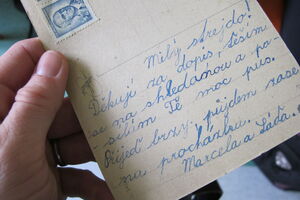 Milý strejdo!
Děkuji za dopis, těším
se na shledanou a po-
sílám Ti moc pus.
Přijeď brzy, půjdem zase
na procházku.
Marcela a Láďa.